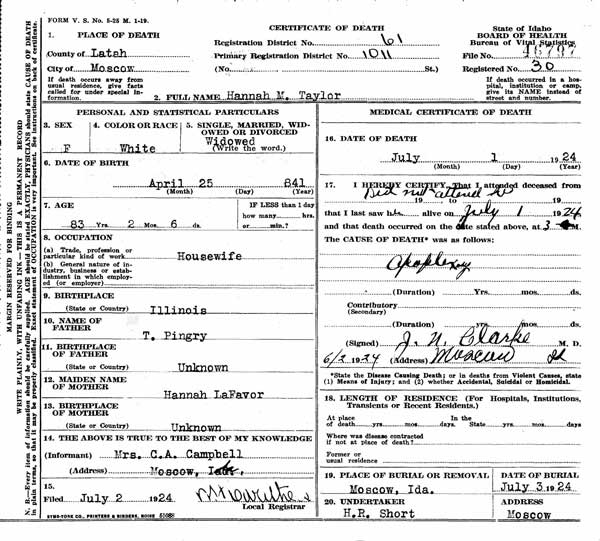 FORM V. S. No. 5-25 M. 1-19.
CERTIFICATE OF DEATH
State of Idaho
BOARD OF HEALTH
Bureau of Vital Statistics
1. PLACE OF DEATH
Registration District No. 61
County of Latah
Primary Registration District No. 1011
File No.
City of Moscow
(No. St.)
Registered No. 30
If death occurs away from usual residence, give facts called for under special information.
If death occurred in a hospital, institution or camp, give its NAME instead of street and number.
2. FULL NAME Hannah M. Taylor
PERSONAL AND STATISTICAL PARTICULARS
3. SEX F
4. COLOR OR RACE White
5. SINGLE, MARRIED, WIDOWED OR DIVORCED Widowed
(Write the word.)
6. DATE OF BIRTH
April 25 841
(Month) (Day) (Year)
7. AGE
IF LESS than 1 day
how many hrs.
83 Yrs. 2 Mos. 6 ds. or min.?
8. OCCUPATION
(a) Trade, profession or particular kind of work Housewife
(b) General nature of industry, business or establishment in which employed (or employer)
9. BIRTHPLACE
(State or Country) Illinois
10. NAME OF FATHER
T. Pingry
11. BIRTHPLACE OF FATHER
(State or Country) Unknown
12. MAIDEN NAME OF MOTHER
Hannah LaFavor
13. BIRTHPLACE OF MOTHER
(State or Country) Unknown
14. THE ABOVE IS TRUE TO THE BEST OF MY KNOWLEDGE
(Informant) Mrs. C.A. Campbell
(Address) Moscow,
15.
Filed July 2 1924
Local Registrar
SYMS-YORK CO., PRINTERS & BINDERS, BOISE
MEDICAL CERTIFICATE OF DEATH
16. DATE OF DEATH
July 1 1924
(Month) (Day) (Year)
17. I HEREBY CERTIFY, That I attended deceased from
Did not attend
19 to 19
that I last saw h alive on July 1 1924
and that death occurred on the date stated above, at 3 M.
The CAUSE OF DEATH* was as follows:
Apoplexy
(Duration) Yrs. mos. ds.
Contributory
(Secondary)
(Duration) yrs. mos. ds.
(Signed) J. N. Clarke M. D.
6/2 1924 (Address) Moscow Id
*State the Disease Causing Death; or in deaths from Violent Causes, state (1) Means of Injury; and (2) whether Accidental, Suicidal or Homicidal.
18. LENGTH OF RESIDENCE (For Hospitals, Institutions, Transients or Recent Residents.)
At place of death yrs. mos. days. In the State yrs. mos. days.
Where was disease contracted if not at place of death?
Former or usual residence
19. PLACE OF BURIAL OR REMOVAL
Moscow, Ida.
DATE OF BURIAL
July 3 1924
20. UNDERTAKER
H.R. Short
ADDRESS
Moscow
MARGIN RESERVED FOR BINDING
WRITE PLAINLY, WITH UNFADING INK—THIS IS A PERMANENT RECORD
N. B.—Every item of information should be carefully supplied. AGE should be stated EXACTLY. PHYSICIANS should state CAUSE OF DEATH in plain terms, so that it may be properly classified. Exact statement of OCCUPATION is very important. See instructions on back of certificate.